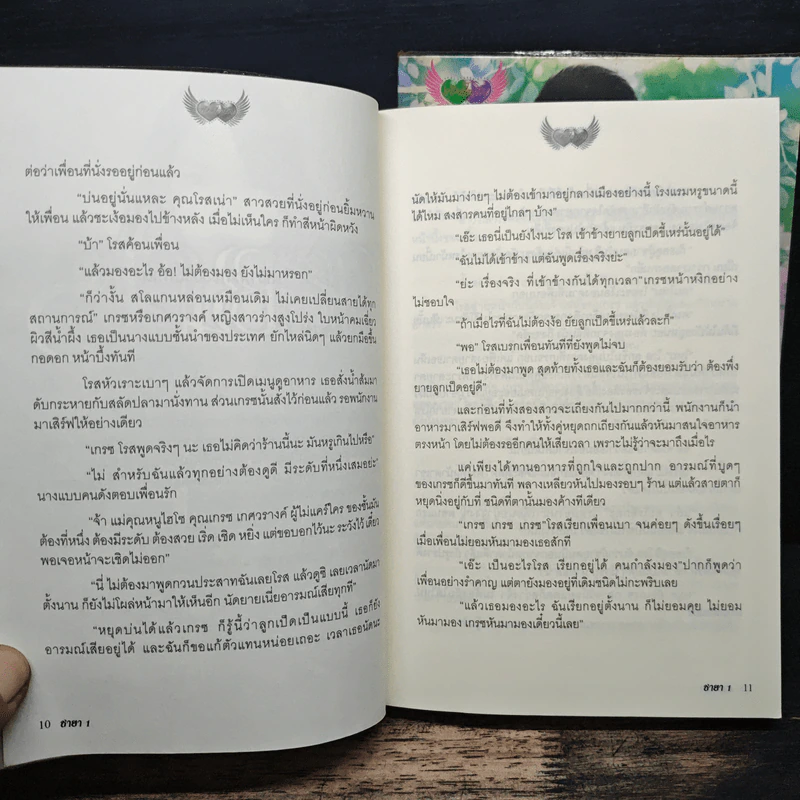 ต่อว่าเพื่อนที่นั่งรออยู่ก่อนแล้ว
“บ่นอยู่นั่นแหละ คุณโรสเน่า” สาวสวยที่นั่งอยู่ก่อนยิ้มหวาน
ให้เพื่อน แล้วชะเง้อมองไปข้างหลัง เมื่อไม่เห็นใคร ก็ทำสีหน้าผิดหวัง
“บ้า” โรสค้อนเพื่อน
“แล้วมองอะไร อ้อ! ไม่ต้องมอง ยังไม่มาหรอก”
“ก็ว่างั้น สโลแกนหล่อนเหมือนเดิม ไม่เคยเปลี่ยนสายได้ทุก
สถานการณ์” เกรซหรือเกศวรางค์ หญิงสาวร่างสูงโปร่ง ใบหน้าคมเฉี่ยว
ผิวสีน้ำผึ้ง เธอเป็นนางแบบชั้นนำของประเทศ ยักไหล่นิดๆ แล้วยกมือขึ้น
กอดอก หน้าบึ้งทันที
โรสหัวเราะเบาๆ แล้วจัดการเปิดเมนูดูอาหาร เธอสั่งน้ำส้มมา
ดับกระหายกับสลัดปลามานั่งทาน ส่วนเกรซนั้นสั่งไว้ก่อนแล้ว รอพนักงาน
มาเสิร์ฟให้อย่างเดียว
“เกรซ โรสพูดจริงๆ นะ เธอไม่คิดว่าร้านนี้นะ มันหรูเกินไปหรือ”
“ไม่ สำหรับฉันแล้วทุกอย่างต้องดูดี มีระดับที่หนึ่งเสมอย่ะ”
นางแบบคนดังตอบเพื่อนรัก
“จ้า แม่คุณหนูไฮโซ คุณเกรซ เกศวรางค์ ผู้ไม่แคร์ใคร ของชั้นมัน
ต้องที่หนึ่ง ต้องมีระดับ ต้องสวย เริ่ด เชิด หยิ่ง แต่ขอบอกไว้นะ ระวังไว้ เดี๋ยว
พอเจอหน้าจะเชิดไม่ออก”
“นี่ ไม่ต้องมาพูดกวนประสาทฉันเลยโรส แล้วดูซิ เลยเวลานัดมา
ตั้งนาน ก็ยังไม่โผล่หน้ามาให้เห็นอีก นัดยายเนี่ยอารมณ์เสียทุกที”
“หยุดบ่นได้แล้วเกรซ ก็รู้นี่ว่าลูกเป็ดเป็นแบบนี้ เธอก็ยัง
อารมณ์เสียอยู่ได้ และฉันก็ขอแก้ตัวแทนหน่อยเถอะ เวลาเธอนัดนะ
10 ชายา 1
นัดให้มันมาง่ายๆ ไม่ต้องเข้ามาอยู่กลางเมืองอย่างนี้ โรงแรมหรูขนาดนี้
ได้ไหม สงสารคนที่อยู่ไกลๆ บ้าง”
“เอ๊ะ เธอนี่เป็นยังไงนะ โรส เข้าข้างยายลูกเป็ดขี้เหร่นั้นอยู่ได้”
“ฉันไม่ได้เข้าข้าง แต่ฉันพูดเรื่องจริงย่ะ”
“ย่ะ เรื่องจริง ที่เข้าข้างกันได้ทุกเวลา”เกรซหน้าหงิกอย่าง
ไม่ชอบใจ
“ถ้าเมื่อไรที่ฉันไม่ต้องง้อ ยัยลูกเป็ดขี้เหร่แล้วละก็”
“พอ” โรสเบรกเพื่อนทันทีที่ยังพูดไม่จบ
“เธอไม่ต้องมาพูด สุดท้ายทั้งเธอและฉันก็ต้องยอมรับว่า ต้องพึ่ง
ยายลูกเป็ดอยู่ดี”
และก่อนที่ทั้งสองสาวจะเถียงกันไปมากกว่านี้ พนักงานก็นำ
อาหารมาเสิร์ฟพอดี จึงทำให้ทั้งคู่หยุดถกเถียงกันแล้วหันมาสนใจอาหาร
ตรงหน้า โดยไม่ต้องรออีกคนให้เสียเวลา เพราะไม่รู้ว่าจะมาถึงเมื่อไร
แค่เพียงได้ทานอาหารที่ถูกใจและถูกปาก อารมณ์ที่บูดๆ
ของเกรซก็ดีขึ้นมาทันที พลางเหลียวหันไปมองรอบๆ ร้าน แต่แล้วสายตาก็
หยุดนิ่งอยู่กับที่ ชนิดที่ตานั้นมองค้างทีเดียว
“เกรซ เกรซ เกรซ”โรสเรียกเพื่อนเบา จนค่อยๆ ดังขึ้นเรื่อยๆ
เมื่อเพื่อนไม่ยอมหันมามองเธอสักที
“เอ๊ะ เป็นอะไรโรส เรียกอยู่ได้ คนกำลังมอง”ปากก็พูดว่า
เพื่อนอย่างรำคาญ แต่ตายังมองอยู่ที่เดิมชนิดไม่กะพริบเลย
“แล้วเธอมองอะไร ฉันเรียกอยู่ตั้งนาน ก็ไม่ยอมคุย ไม่ยอม
หันมามอง เกรซหันมามองเดี๋ยวนี้เลย”
ชายา 1 11